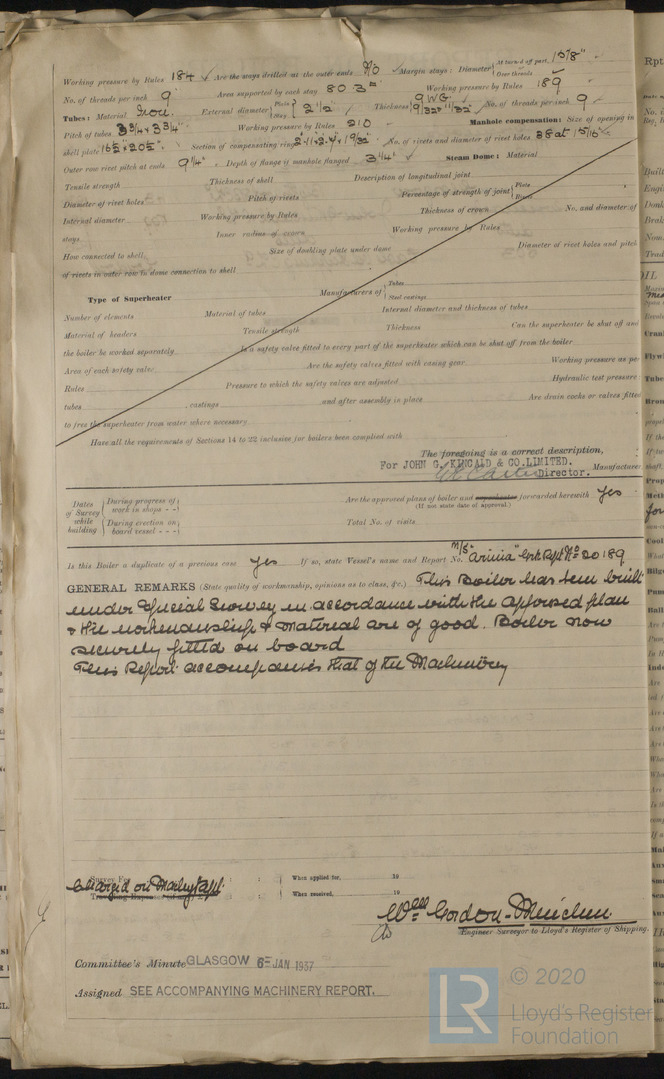 Working pressure by Rules 184 ✓ Are the stays drilled at the outer ends No ✓ Margin stays: Diameter { At turned off part, 1 5/8" Over threads
No. of threads per inch 9 Area supported by each stay 80.3 Working pressure by Rules 189
Tubes: Material Iron External diameter { Plain Stay 2 1/2" Thickness { 9 WG. No. of threads per inch 9
Pitch of tubes 3 3/4 x 3 3/4" Working pressure by Rules 210 Manhole compensation: Size of opening in
shell plate 16½ x 20½" Section of compensating ring No. of rivets and diameter of rivet holes 38 at 1 5/16 ✓
Outer row rivet pitch at ends 9 1/4" Depth of flange if manhole flanged 3 1/4" ✓ Steam Dome: Material
Tensile strength Thickness of shell Description of longitudinal joint
Diameter of rivet holes Pitch of rivets Percentage of strength of joint { Plate Rivets
Internal diameter Working pressure by Rules Thickness of crown No. and diameter of
stays Inner radius of crown Working pressure by Rules
How connected to shell Size of doubling plate under dome Diameter of rivet holes and pitch
of rivets in outer row in dome connection to shell
Type of Superheater Manufacturers of { Tubes Steel castings
Number of elements Material of tubes Internal diameter and thickness of tubes
Material of headers Tensile strength Thickness Can the superheater be shut off and
the boiler be worked separately Is a safety valve fitted to every part of the superheater which can be shut off from the boiler
Area of each safety valve Are the safety valves fitted with easing gear Working pressure as per
Rules Pressure to which the safety valves are adjusted Hydraulic test pressure:
tubes castings and after assembly in place Are drain cocks or valves fitted
to free the superheater from water where necessary
Have all the requirements of Sections 14 to 22 inclusive for boilers been complied with
The foregoing is a correct description,
For JOHN G. KINCAID & CO. LIMITED.
Director. Manufacturer.
Dates of Survey while building { During progress of work in shops - - During erection on board vessel - - -
Are the approved plans of boiler and superheater forwarded herewith yes
(If not state date of approval.)
Total No. of visits
Is this Boiler a duplicate of a previous case yes If so, state Vessel's name and Report No. M/S Rpt No 20189
GENERAL REMARKS (State quality of workmanship, opinions as to class, &c.) This Boiler has been built
under Special Survey in accordance with the approved plan
& the workmanship & material are of good. Boiler now
securely fitted on board
This Report accompanies that of the Machinery
Survey Fee When applied for, 19
Charged on Machy Rpt.
When received, 19
Wm Gordon-
Engineer Surveyor to Lloyd's Register of Shipping.
Committee's Minute GLASGOW 6 - JAN 1937
Assigned SEE ACCOMPANYING MACHINERY REPORT.
LR
© 2020
Lloyd's Register
Foundation